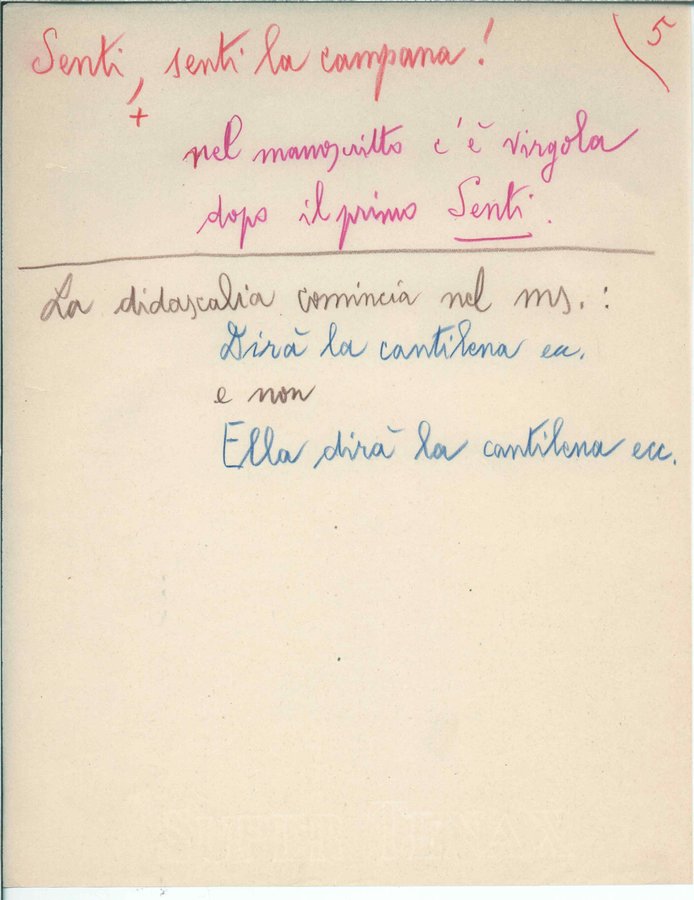 5
Senti, senti la campana!
+
nel manoscritto c'è virgola
dopo il primo Senti.
La didascalia comincia nel ms.:
Dirà la cantilena ec.
e non
Ella dirà la cantilena ecc.